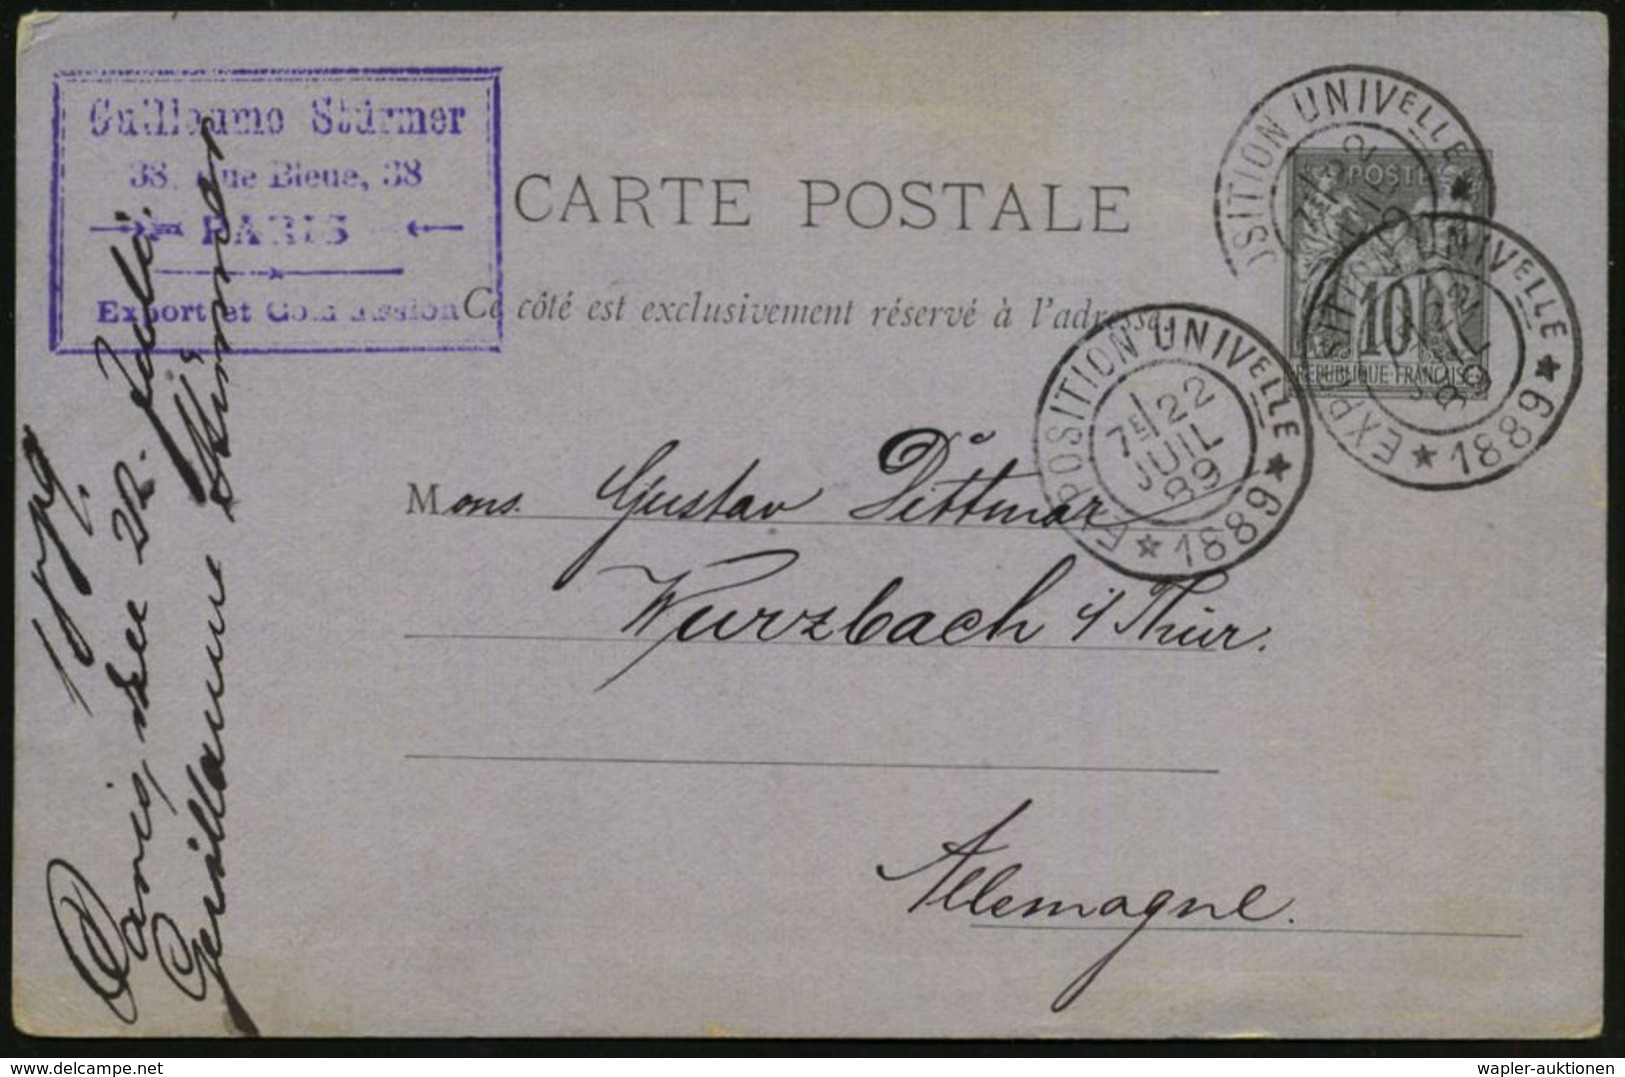 Guillaume Stürmer
38, Rue Bleue, 38
PARIS
Export et Commission
CARTE POSTALE
Ce côté est exclusivement réservé à l'adresse.
POSTES
10
REPUBLIQUE FRANCAISE
EXPOSITION UNIVELLE
1889
7E/22
JUIL
89
OSITION UNIVELLE
EXPOSITION UNIVELLE
1889
22
JUIL
89
Mons. Gustav Dittmar
Wurzbach i/Thür.
Allemagne.
Paris, den 22. Juli
Guillaume Stürmer
www.delcampe.net
wapler-auktionen